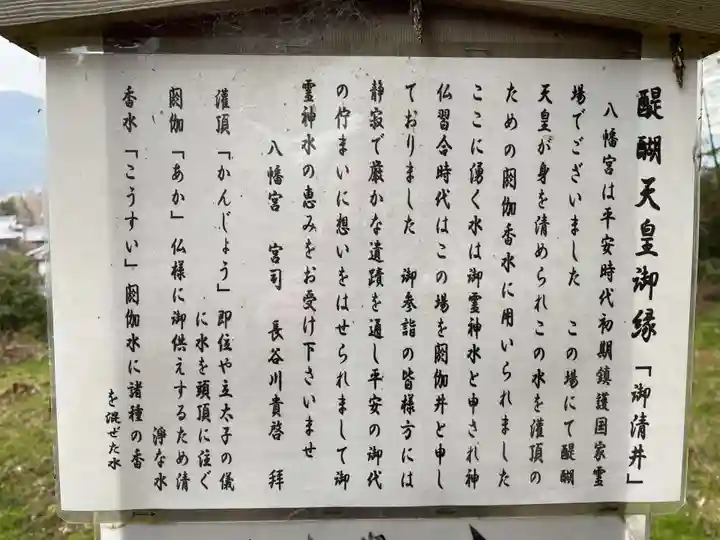 醍醐天皇御縁「御清井」
八幡宮は平安時代初期鎮護国家霊
場でございました　この場にて醍醐
天皇が身を清められこの水を灌頂の
ための閼伽香水に用いられました
ここに湧く水は御霊神水と申され神
仏習合時代はこの場を閼伽井と申し
ておりました　御参詣の皆様方には
静寂で厳かな遺蹟を通し平安の御代
の佇まいに想いをはせられまして御
霊神水の恵みをお受け下さいませ
八幡宮　宮司　長谷川貴啓　拝
灌頂「かんじょう」即位や立太子の儀
に水を頭頂に注ぐ
閼伽「あか」仏様に御供えするため清
浄な水
香水「こうすい」閼伽水に諸種の香
を混ぜた水